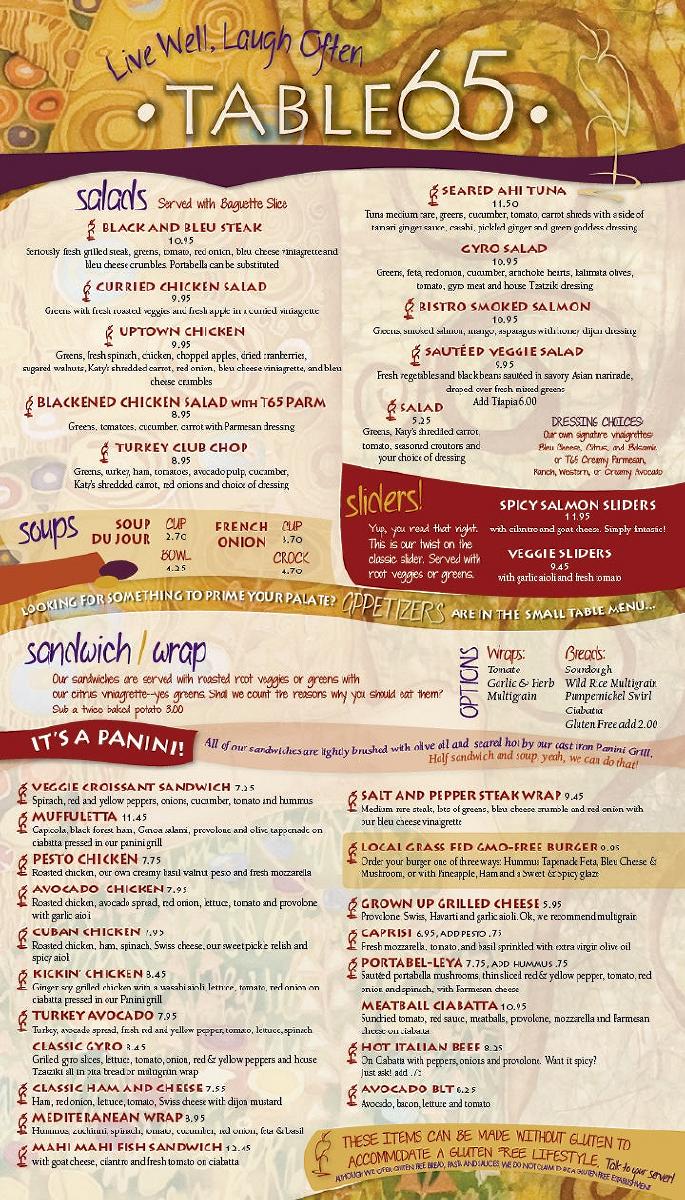 Live Well, Laugh Often
• TABLE 65 •
salads Served with Baguette Slice
BLACK AND BLEU STEAK
10.95
Seriously fresh grilled steak, greens, tomato, red onion, bleu cheese vinaigrette and
bleu cheese crumbles. Portabella can be substituted
CURRIED CHICKEN SALAD
9.95
Greens with fresh roasted veggies and fresh apple in a curried vinaigrette
UPTOWN CHICKEN
9.95
Greens, fresh spinach, chicken, chopped apples, dried cranberries,
sugared walnuts, Katy's shredded carrot, red onion, bleu cheese vinaigrette, and bleu
cheese crumbles
BLACKENED CHICKEN SALAD WITH T65 PARM
8.95
Greens, tomatoes, cucumber, carrot with Parmesan dressing
TURKEY CLUB CHOP
8.95
Greens, turkey, ham, tomatoes, avocado pulp, cucumber,
Katy's shredded carrot, red onions and choice of dressing
SEARED AHI TUNA
11.50
Tuna medium rare, greens, cucumber, tomato, carrot shreds with a side of
tamari ginger sauce, wasabi, pickled ginger and green goddess dressing
GYRO SALAD
10.95
Greens, feta, red onion, cucumber, artichoke hearts, kalamata olives,
tomato, gyro meat and house Tzatzik dressing
BISTRO SMOKED SALMON
10.95
Greens, smoked salmon, mango, asparagus with honey dijon dressing
SAUTÉED VEGGIE SALAD
9.95
Fresh vegetables and black beans sautéed in savory Asian marinade,
draped over fresh mixed greens
Add Tilapia 6.00
SALAD
5.25
Greens, Katy's shredded carrot,
tomato, seasoned croutons and
your choice of dressing
DRESSING CHOICES:
Our own signature vinaigrettes:
Bleu Cheese, Citrus, and Balsamic
or T65 Creamy Parmesan,
Ranch, Western, or Creamy Avocado
soups
SOUP DU JOUR
CUP
2.70
BOWL
4.25
FRENCH ONION
CUP
3.70
CROCK
4.70
sliders!
Yup, you read that right.
This is our twist on the
classic slider. Served with
root veggies or greens.
SPICY SALMON SLIDERS
11.95
with cilantro and goat cheese. Simply fantastic!
VEGGIE SLIDERS
9.45
with garlic aioli and fresh tomato
LOOKING FOR SOMETHING TO PRIME YOUR PALATE? APPETIZERS ARE IN THE SMALL TABLE MENU...
sandwich / wrap
Our sandwiches are served with roasted root veggies or greens with
our citrus vniagrette--yes greens. Shall we count the reasons why you should eat them?
Sub a twice baked potato 3.00
OPTIONS
Wraps:
Tomato
Garlic & Herb
Multigrain
Breads:
Sourdough
Wild Rice Multigrain
Pumpernickel Swirl
Ciabatta
Gluten Free add 2.00
IT'S A PANINI!
All of our sandwiches are lightly brushed with olive oil and seared hot by our cast iron Panini Grill.
Half sandwich and soup, yeah, we can do that!
VEGGIE CROISSANT SANDWICH 7.25
Spinach, red and yellow peppers, onions, cucumber, tomato and hummus
MUFFULETTA 11.45
Capicola, black forest ham, Genoa salami, provolone and olive tappenade on
ciabatta pressed in our panini grill
PESTO CHICKEN 7.75
Roasted chicken, our own creamy basil walnut pesto and fresh mozzarella
AVOCADO CHICKEN 7.95
Roasted chicken, avocado spread, red onion, lettuce, tomato and provolone
with garlic aioli
CUBAN CHICKEN 7.95
Roasted chicken, ham, spinach, Swiss cheese, our sweet pickle relish and
spicy aioli
KICKIN' CHICKEN 8.45
Ginger soy grilled chicken with a wasabi aioli, lettuce, tomato, red onion on
ciabatta pressed in our Panini grill
TURKEY AVOCADO 7.95
Turkey, avocado spread, fresh red and yellow pepper, tomato, lettuce, spinach
CLASSIC GYRO 8.45
Grilled gyro slices, lettuce, tomato, onion, red & yellow peppers and house
Tzatziki all in pita bread or multigrain wrap
CLASSIC HAM AND CHEESE 7.55
Ham, red onion, lettuce, tomato, Swiss cheese with dijon mustard
MEDITERANEAN WRAP 8.95
Hummus, zuchinni, spinach, tomato, cucumber, red onion, feta & basil
MAHI MAHI FISH SANDWICH 12.45
with goat cheese, cilantro and fresh tomato on ciabatta
SALT AND PEPPER STEAK WRAP 9.45
Medium rare steak, lots of greens, bleu cheese crumble and red onion with
our bleu cheese vinaigrette
LOCAL GRASS FED GMO-FREE BURGER 9.95
Order your burger one of three ways: Hummus Tapenade Feta, Bleu Cheese &
Mushroom, or with Pineapple, Ham and a Sweet & Spicy glaze
GROWN UP GRILLED CHEESE 5.95
Provolone, Swiss, Havarti and garlic aioli. Ok, we recommend multigrain
CAPRISI 6.95, ADD PESTO .75
Fresh mozzarella, tomato, and basil sprinkled with extra virgin olive oil
PORTABEL-LEYA 7.75, ADD HUMMUS .75
Sautéed portabella mushrooms, thin sliced red & yellow pepper, tomato, red
onion and spinach, with Parmesan cheese
MEATBALL CIABATTA 10.95
Sundried tomato, red sauce, meatballs, provolone, mozzarella and Parmesan
cheese on ciabatta
HOT ITALIAN BEEF 8.25
On Ciabata with peppers, onions and provolone. Want it spicy?
Just ask! add .75
AVOCADO BLT 6.25
Avocado, bacon, lettuce and tomato
THESE ITEMS CAN BE MADE WITHOUT GLUTEN TO
ACCOMMODATE A GLUTEN FREE LIFESTYLE. Talk to your server!
ALTHOUGH WE OFFER GLUTEN FREE BREAD, PASTA AND SAUCES, WE DO NOT CLAIM TO BE A GLUTEN FREE ESTABLISHMENT